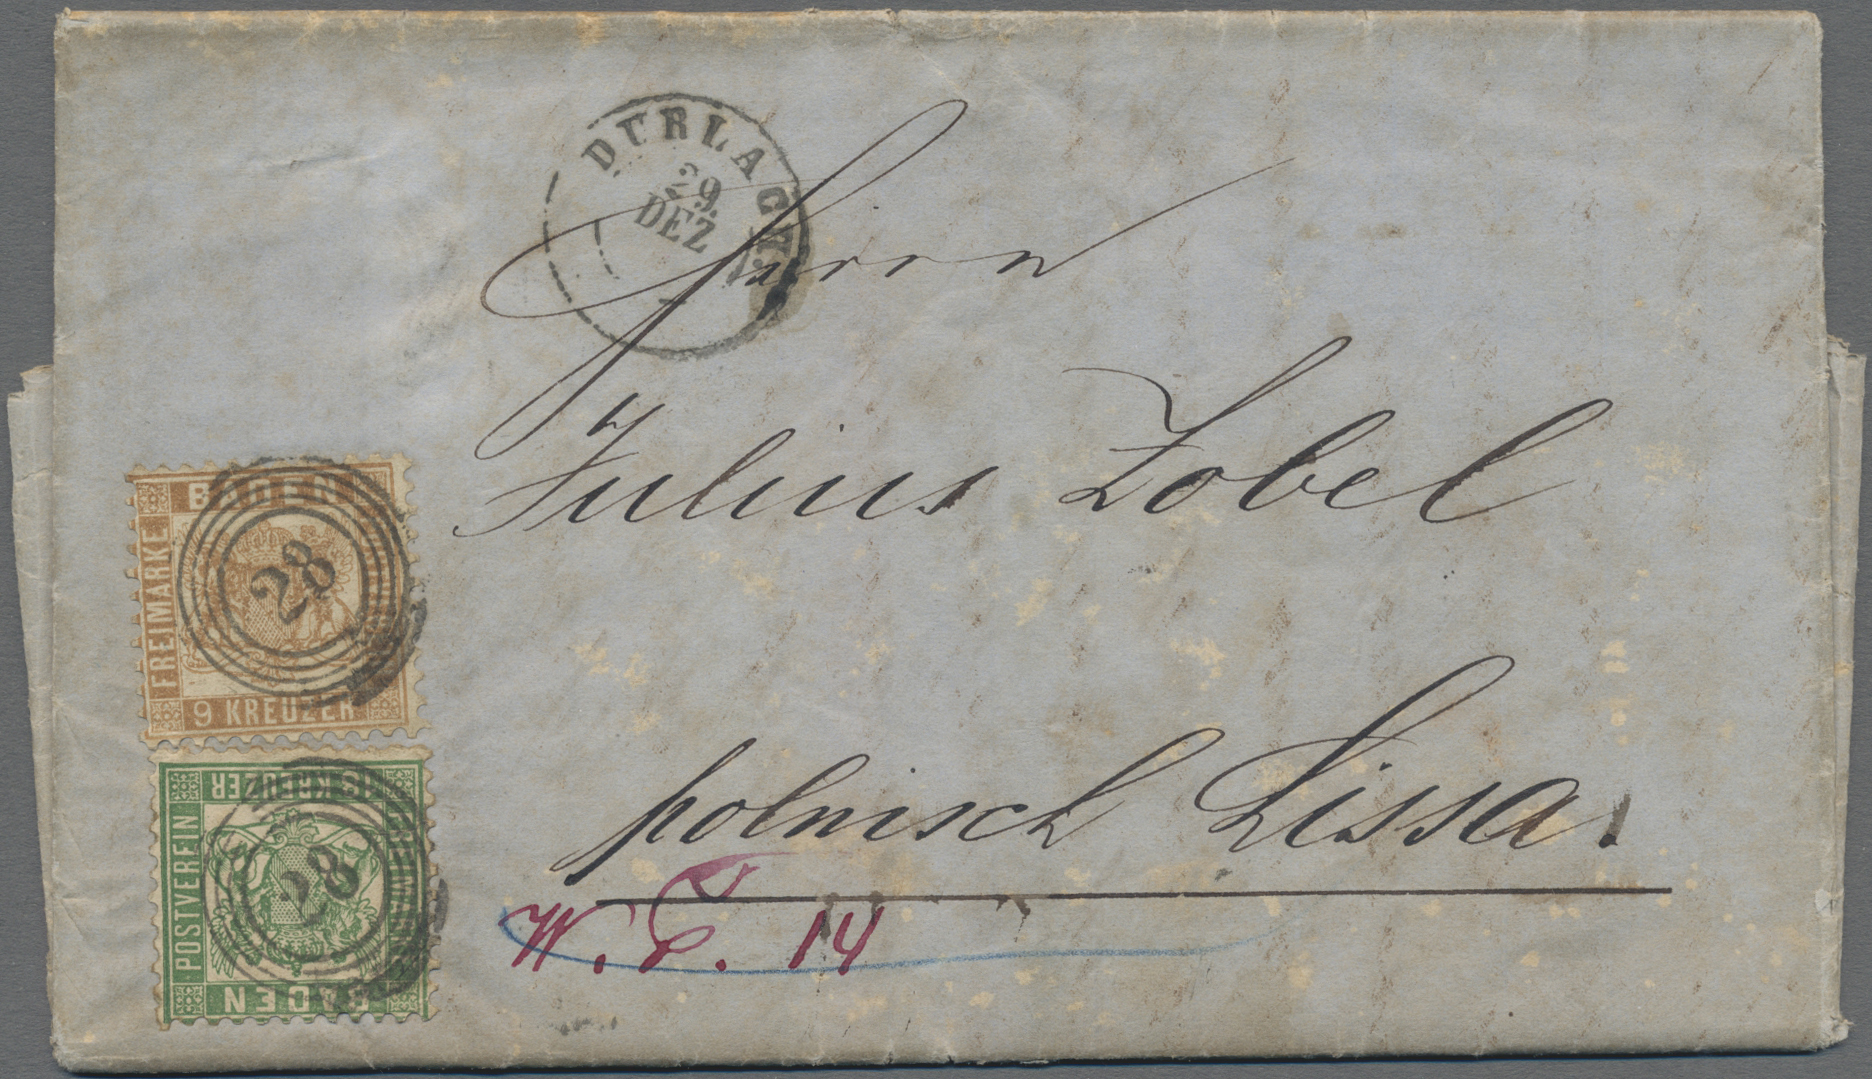 DURLACH
29
DEZ
Herrn
Julius Zobel
polnisch Lissa.
BADEN
FREIMARKE
28
9 KREUZER
KREUZER
POSTVEREIN
28
FREIMARKE
BADEN
14